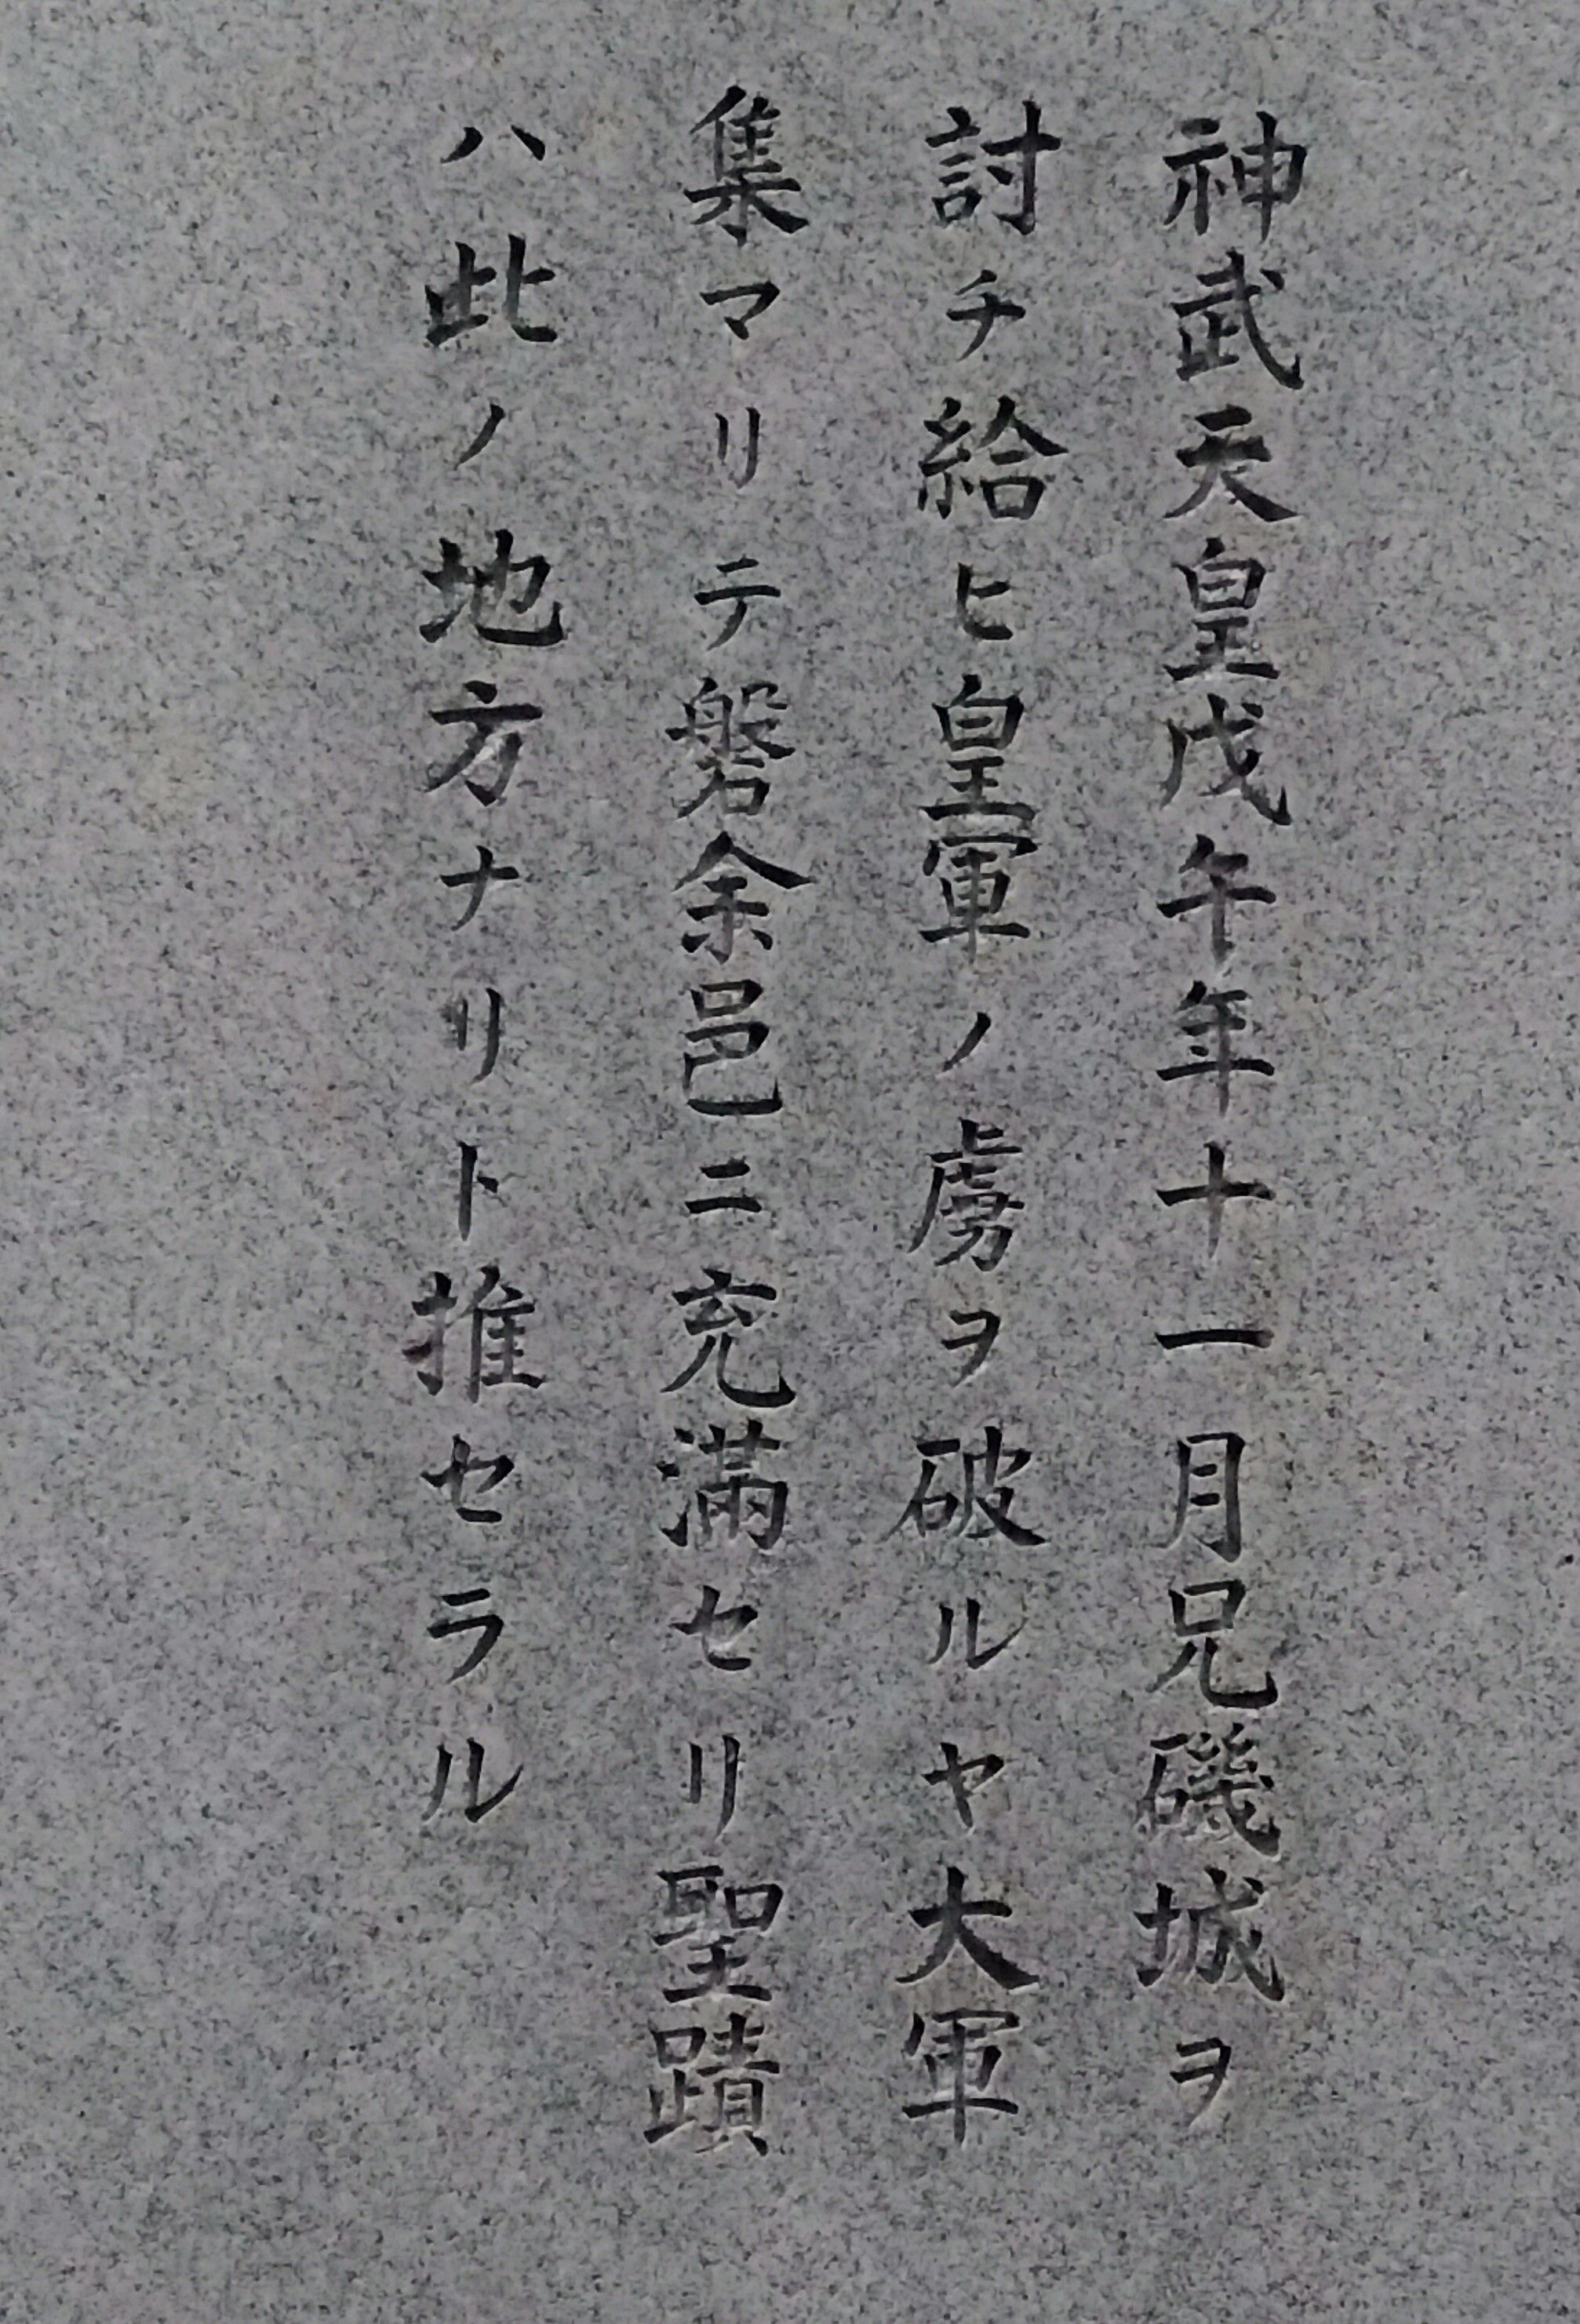 神武天皇戊午年十一月兄磯城ヲ
討チ給ヒ皇軍ノ虜ヲ破ルヤ大軍
集マリテ磐余邑ニ充滿セリ聖蹟
ハ此ノ地方ナリト推セラル